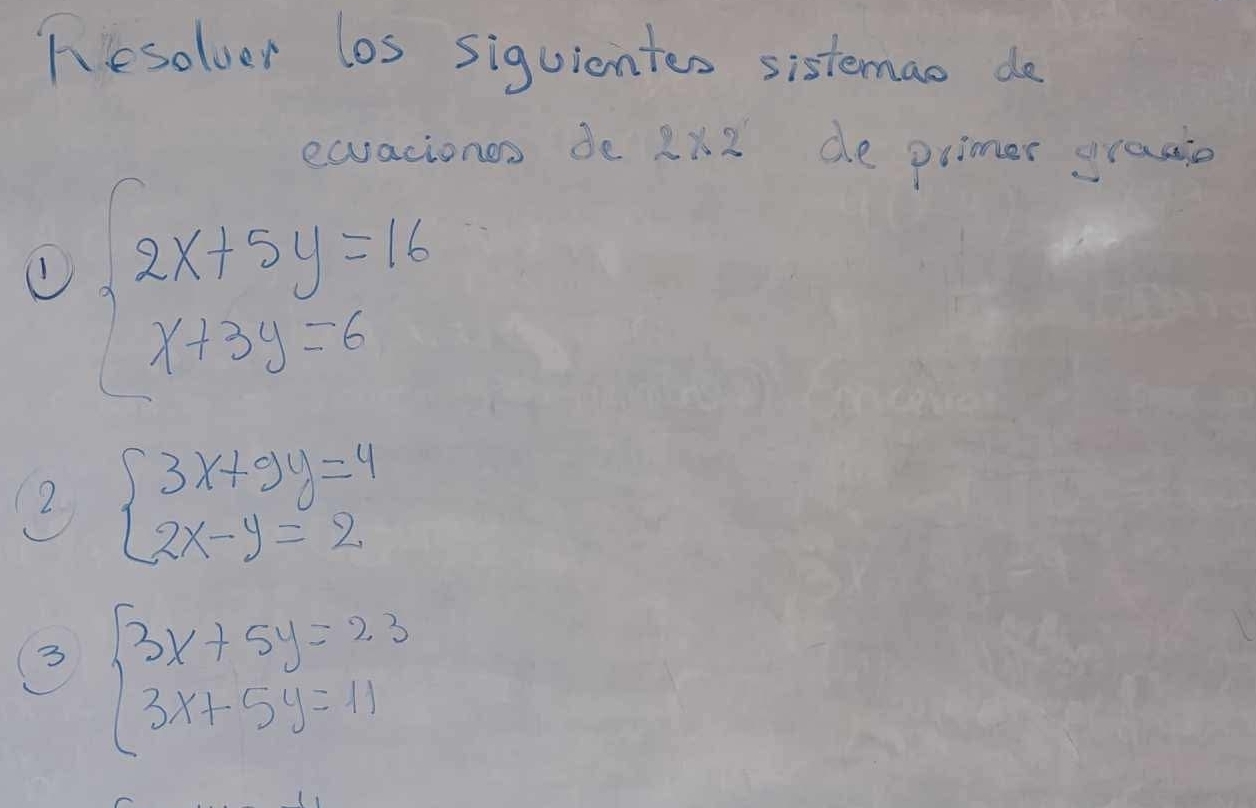 Resolver los siguientes sistemas de
ecuaciones de 2x2 de primer grado
① 2x+5y=16
x+3y=6
② 3x+9y=4
2x-y=2
③ 3x+5y=23
3x+5y=11